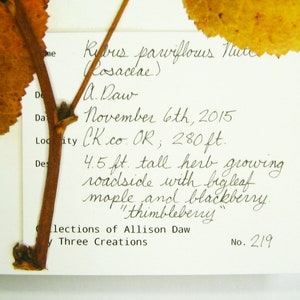 Rubus parviflorus Nutt
(Rosaceae)
A. Daw
November 6th, 2015
CK co OR; 280 ft.
4.5 ft. tall herb growing
roadside with bigleaf
maple and blackberry
"thimbleberry"
llections of Allison Daw
y Three Creations No. 219